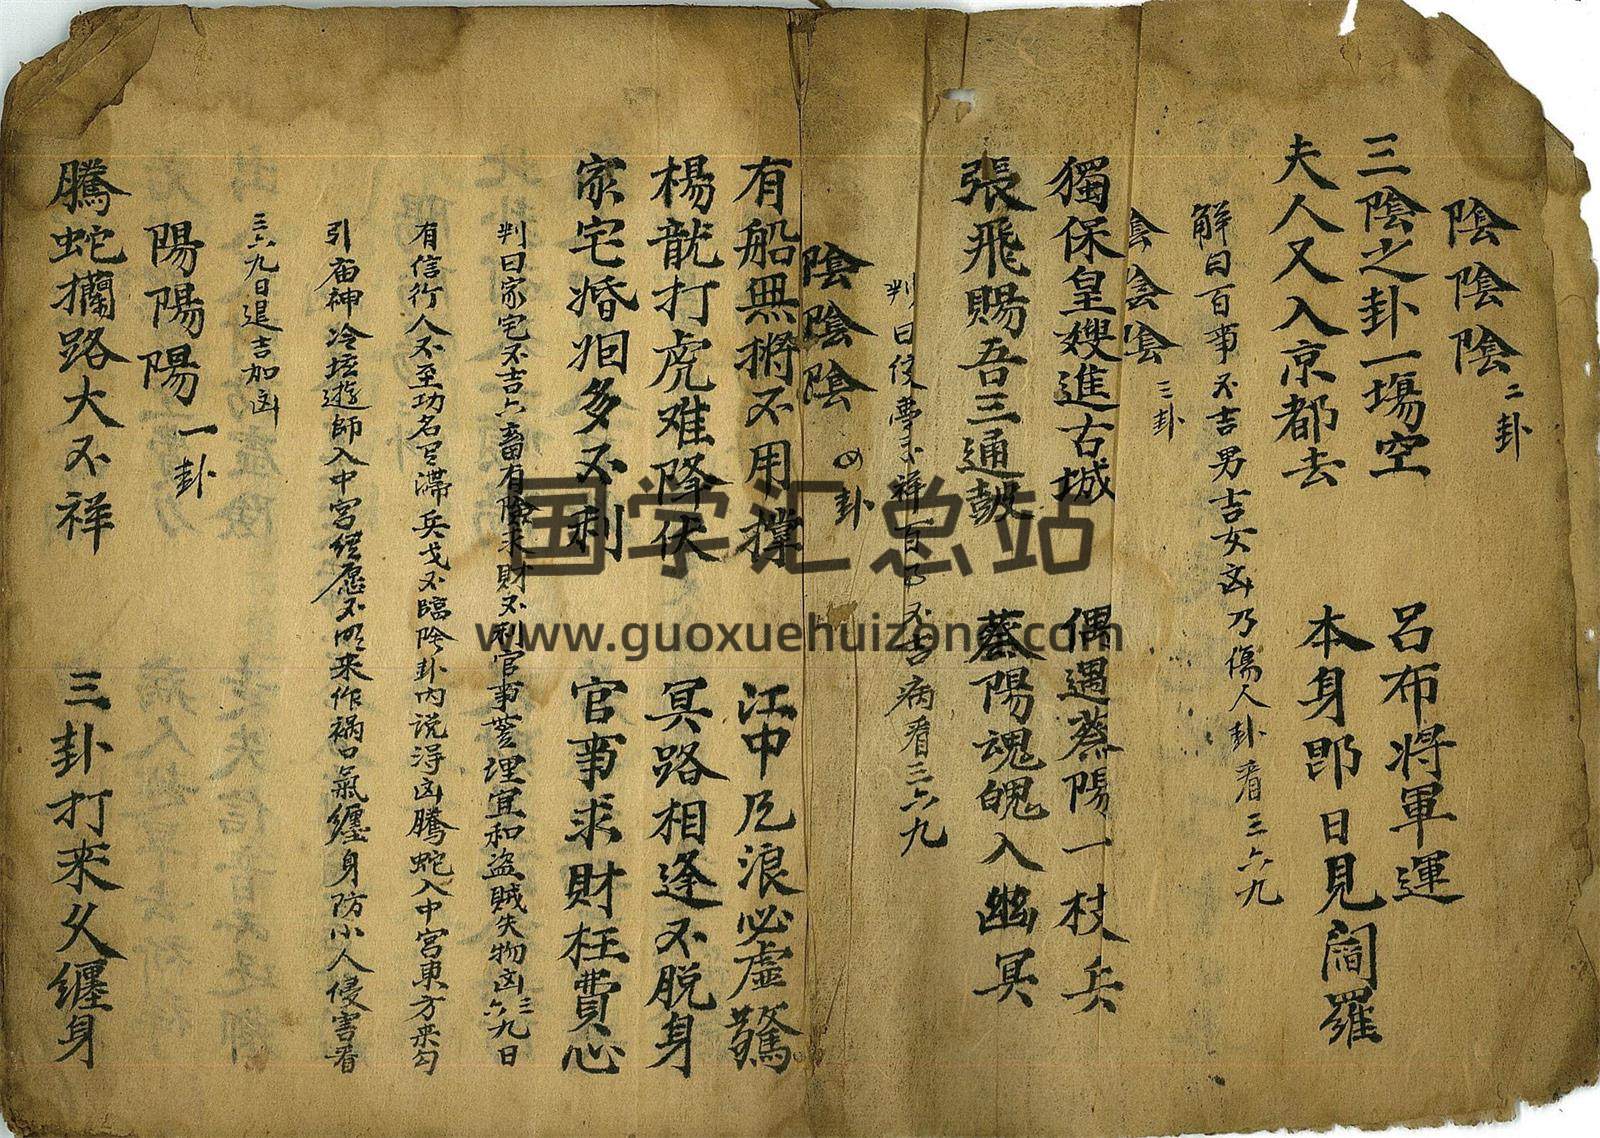 陰陰陰 二卦
三陰之卦一塲空 呂布将軍運
夫人又入京都去 本身即日見閻羅
解曰百事不吉男吉女凶乃傷人卦看三六九
陰陰陰 三卦
獨保皇嫂進古城 偶遇蔡陽一枝兵
張飛賜吾三通皷 蔡陽魂魄入幽冥
判曰夢不祥百不吉病看三六九
陰陰陰 四卦
有船無搠不用撑 江中風浪必虚驚
楊龍打虎难降伏 冥路相逢不脱身
家宅婚姻多不利 官事求財枉費心
判曰家宅不吉六畜有險求財不利官事理宜和盗賊失物凶三六九日
有信行人不至功名官滯兵戈不臨陰卦内说淂凶騰蛇入中宫東方来勾
引庙神冷坛遊師入中宫愿不明来作禍口氣纏身防小人侵害看
三六九日退吉加凶
陽陽陽 一卦
騰蛇攔路大不祥 三卦打来久纏身
国学汇总站
www.guoxuehuizong.com